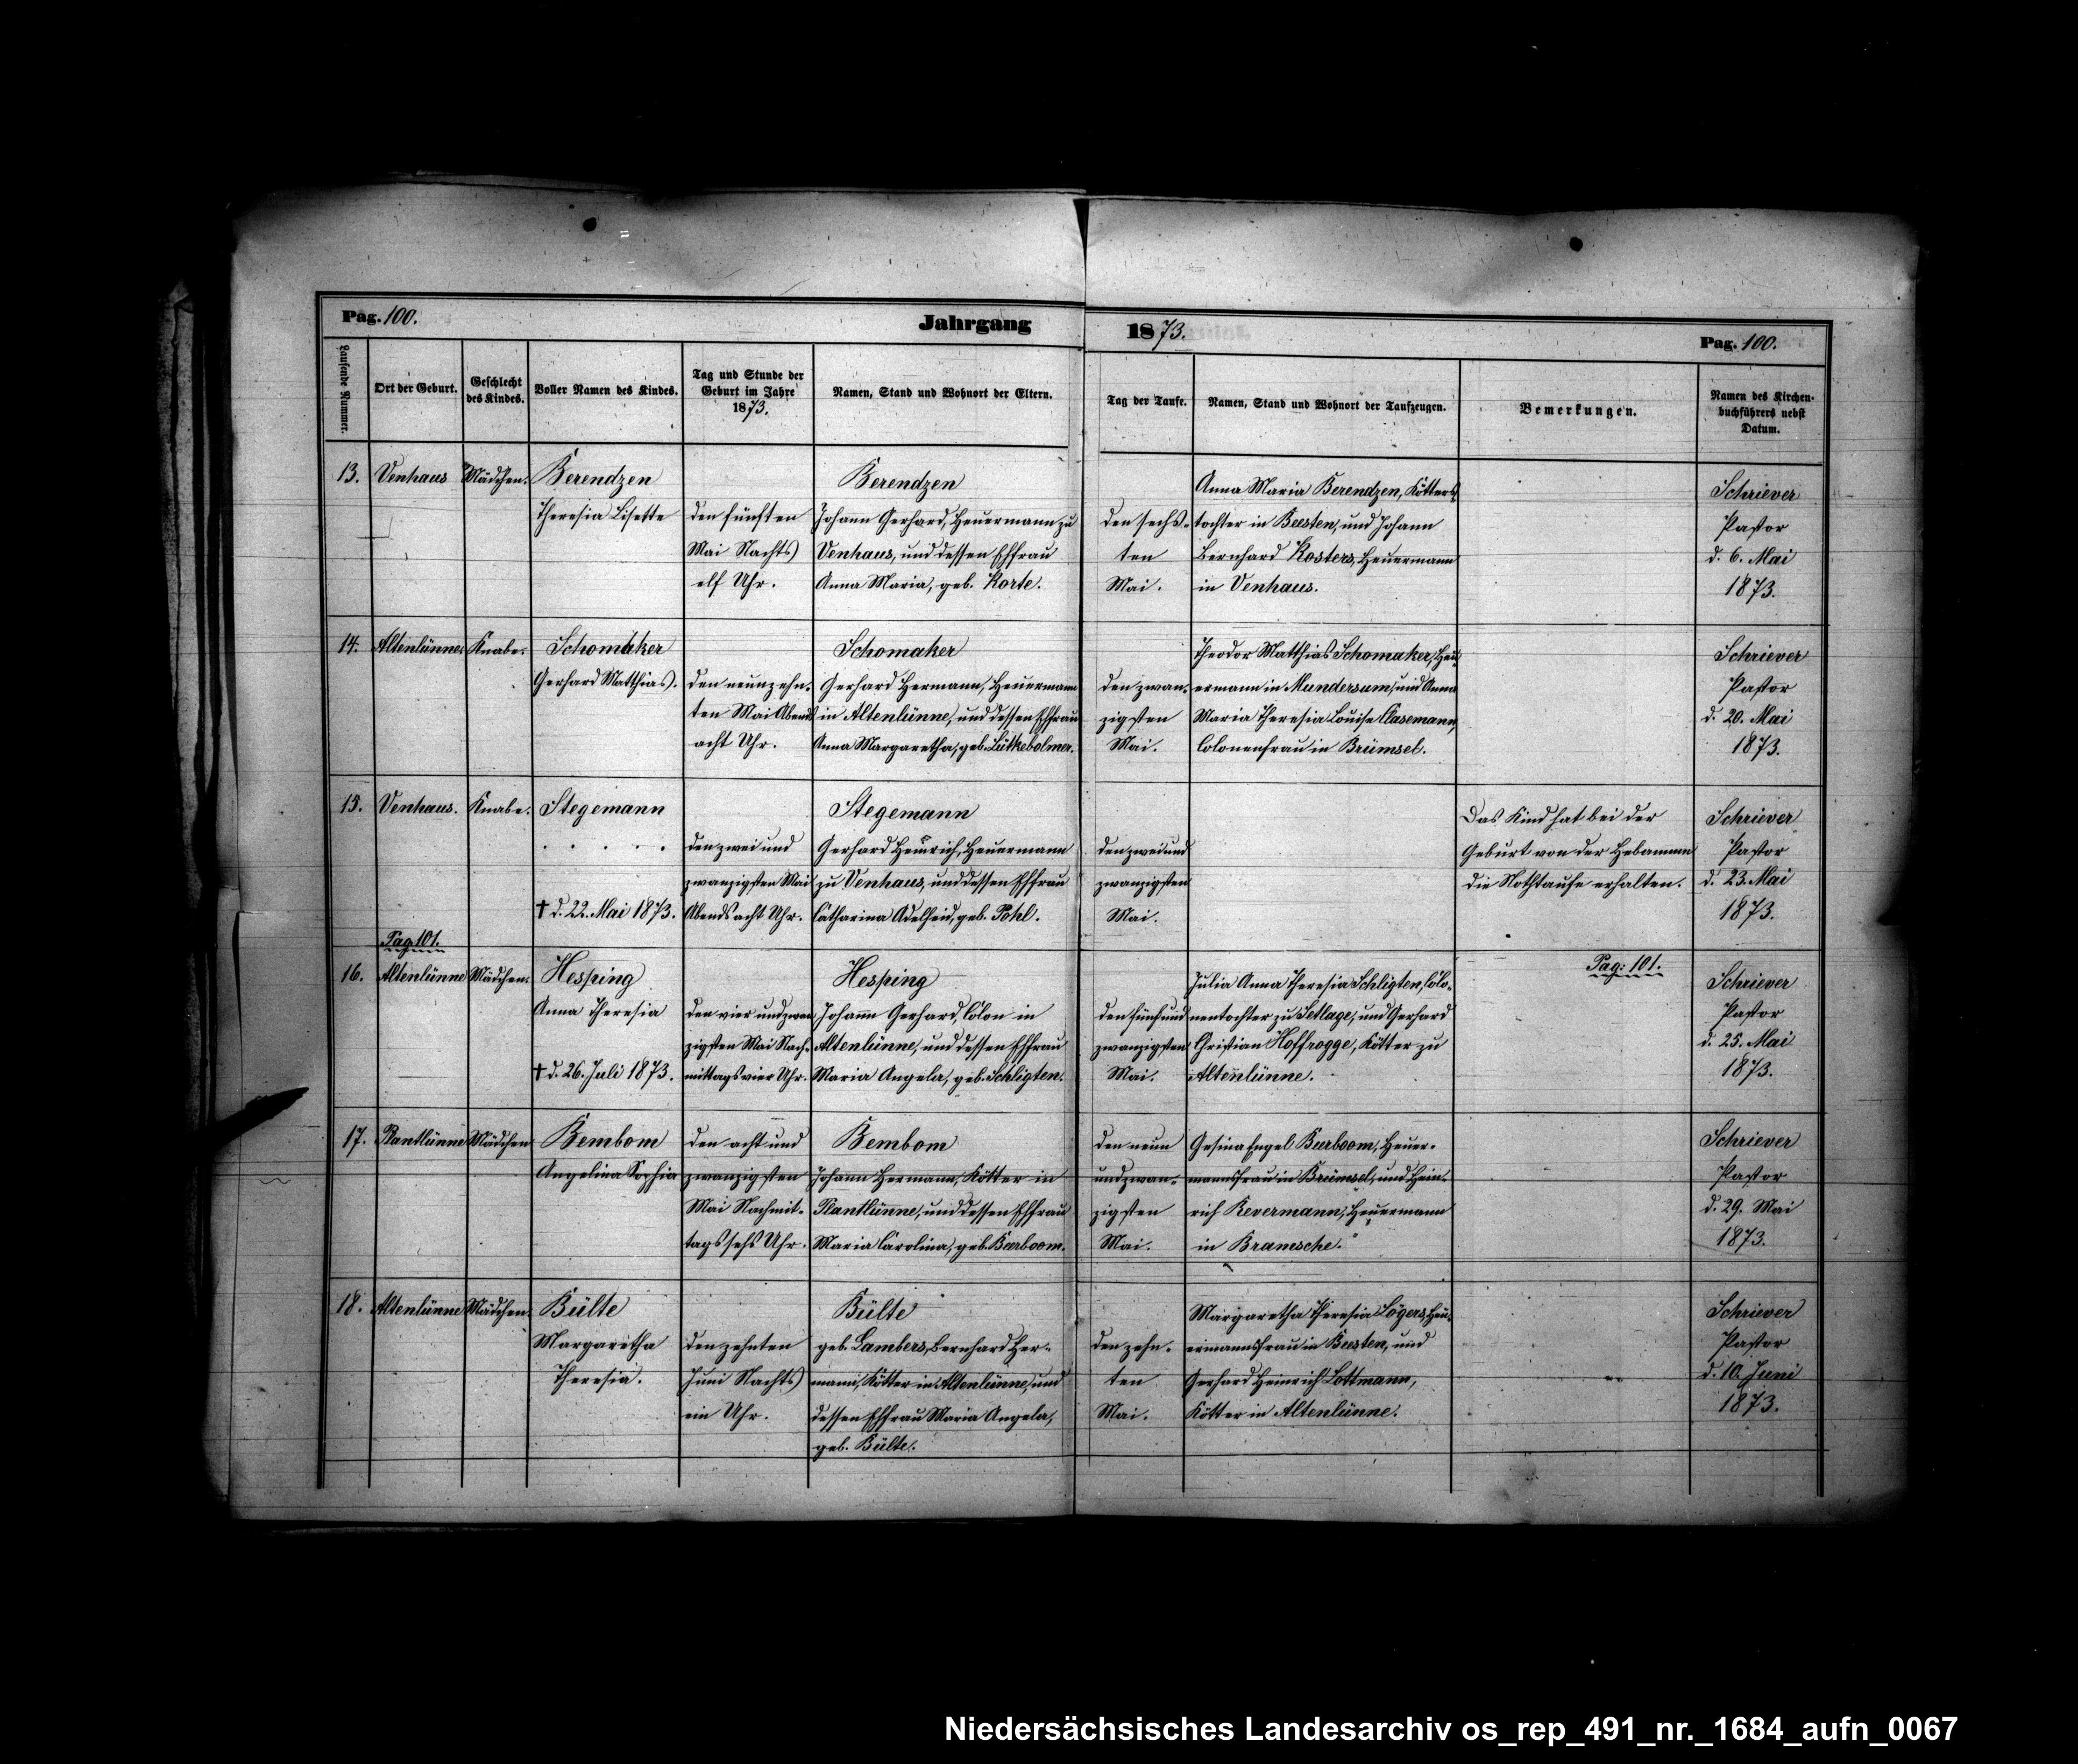 Pag. 100.
Jahrgang
1873.
Pag. 100.
Laufende Nummer.
Ort der Geburt.
Geschlecht
des Kindes.
Voller Namen des Kindes.
Tag und Stunde der
Geburt im Jahre
1873.
Namen, Stand und Wohnort der Eltern.
Tag der Taufe.
Namen, Stand und Wohnort der Taufzeugen.
Bemerkungen.
Namen des Kirchen-
buchführers nebst
Datum.
13.
Venhaus
Mädchen.
Berendzen
Theresia Lisette
den fünften
Mai Nachts
elf Uhr.
Berendzen
Johann Gerhard, Heuermann zu
Venhaus, und dessen Ehfrau
Anna Maria, geb. Korte.
den sechs-
ten
Mai.
Anna Maria Berendzen, Kötters-
tochter in Beesten, und Johann
Bernhard Kosters, Heuermann
in Venhaus.
Schriever
Pastor
d. 6. Mai
1873.
14.
Altenlünne
Knabe.
Schomaker
Gerhard Matthias.
den neunzehn-
ten Mai Abends
acht Uhr.
Schomaker
Gerhard Hermann, Heuermann
in Altenlünne, und dessen Ehfrau
Anna Margaretha, geb. Lütkebolmer.
den zwan-
zigsten
Mai.
Theodor Matthias Schomaker, Heu-
ermann in Mundersum, und Anna
Maria Theresia Louise Clasemann,
Colonenfrau in Brümsel.
Schriever
Pastor
d. 20. Mai
1873.
15.
Venhaus.
Knabe.
Stegemann
. . . . .
† d. 22. Mai 1873.
den zwei und
zwanzigsten Mai
Abends acht Uhr.
Stegemann
Gerhard Heinrich, Heuermann
zu Venhaus, und dessen Ehfrau
Catharina Adelheid, geb. Pohl.
den zwei und
zwanzigsten
Mai.
Das Kind hat bei der
Geburt von der Hebamme
die Nothtaufe erhalten.
Schriever
Pastor
d. 23. Mai
1873.
Pag 101.
16.
Altenlünne
Mädchen.
Hesping
Anna Theresia
† d. 26. Juli 1873.
den vier und zwan
zigsten Mai Nach-
mittags vier Uhr.
Hesping
Johann Gerhard, Colon in
Altenlünne, und dessen Ehfrau
Maria Angela, geb. Schligten.
den fünf und
zwanzigsten
Mai.
Julia Anna Theresia Schligten, Colo-
nentochter zu Setlage, und Gerhard
Christian Hoffrogge, Kötter zu
Altenlünne.
Pag: 101.
Schriever
Pastor
d. 25. Mai
1873.
17.
Plantlünne
Mädchen
Bembom
Angelina Sophia
den acht und
zwanzigsten
Mai Nachmit-
tags sechs Uhr.
Bembom
Johann Hermann, Kötter in
Plantlünne, und dessen Ehfrau
Maria Carolina, geb. Beerboom.
den neun
und zwan-
zigsten
Mai.
Gesina Engel Beerboom, Heuer-
mannsfrau in Brümsel, und Hein-
rich Revermann, Heuermann
in Bramsche.
Schriever
Pastor
d. 29. Mai
1873.
18.
Altenlünne
Mädchen.
Bülte
Margaretha
Theresia.
den zehnten
Juni Nachts
ein Uhr.
Bülte
geb. Lambers, Bernhard Her-
mann, Kötter in Altenlünne, und
dessen Ehfrau Maria Angela,
geb. Bülte.
den zehn-
ten
Mai.
Margaretha Theresia Lögers, Heu-
ermannsfrau in Beesten, und
Gerhard Heinrich Lottmann,
Kötter in Altenlünne.
Schriever
Pastor
d. 10. Juni
1873.
Niedersächsisches Landesarchiv os_rep_491_nr._1684_aufn_0067